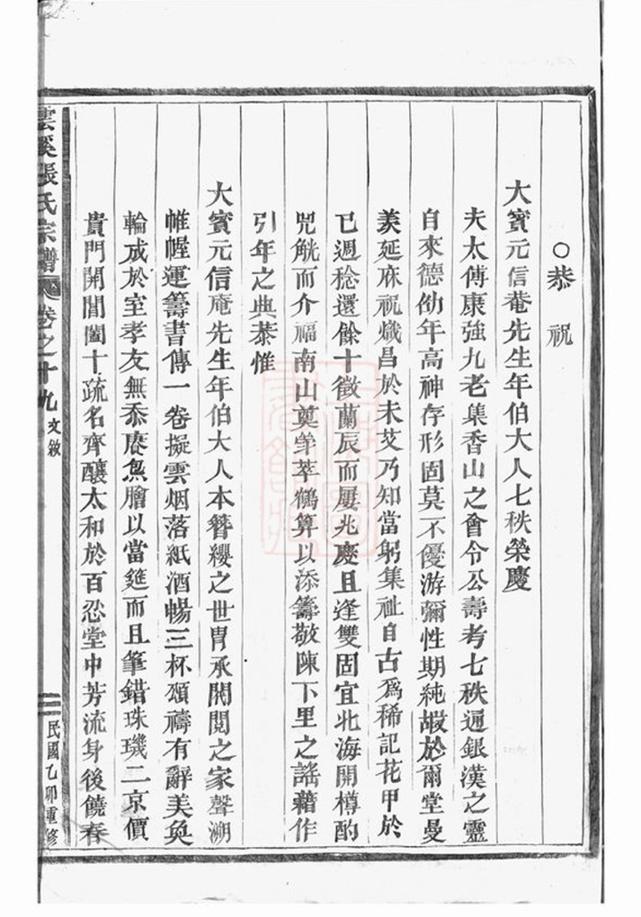 ○恭祝
大賓元信菴先生年伯大人七秩榮慶
夫太傅康強九老集香山之會令公壽考七秩通銀漢之靈
自來德劭年高神存形固莫不優游彌性期純嘏於爾堂曼
羡延庥祝熾昌於未艾乃知當躬集祉自古爲稀記花甲於
已週稔還餘十徵蘭辰而屢兆慶且逢雙固宜北海開樽酌
兕觥而介福南山奠斚萃鶴算以添籌敬陳下里之謠藉作
引年之典恭惟
大賓元信庵先生年伯大人本簪纓之世胄承閥閱之家聲溯
帷幄運籌書傳一卷擬雲烟落紙酒暢三杯頌禱有辭美奐
輪成於室孝友無忝庶魚膾以當筵而且筆錯珠璣二京價
貴門開閶闔十疏名齊釀太和於百忍堂中芳流身後饒春
雲溪張氏宗譜 卷之十九 文敘
二 民國乙卯重修